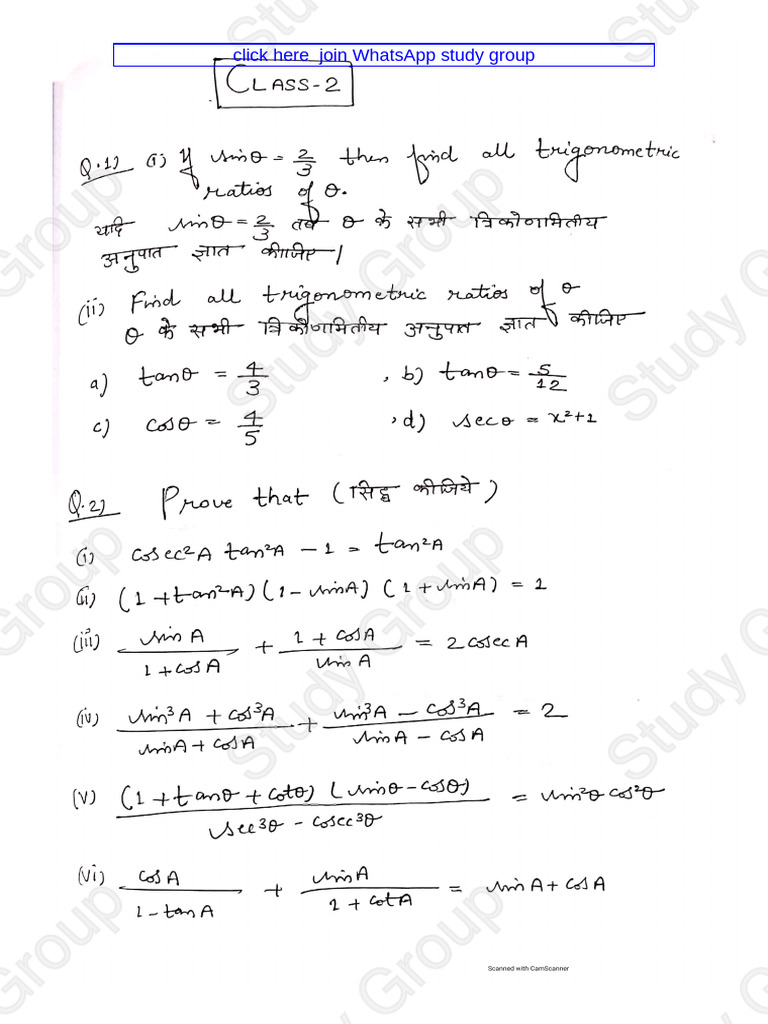 click here join WhatsApp study group
CLASS-2
Q.1) (i) If sinθ = 2/3 then find all trigonometric
ratios of θ.
यदि sinθ = 2/3 तब θ के सभी त्रिकोणामितीय
अनुपात ज्ञात कीजिए।
(ii) Find all trigonometric ratios of θ
θ के सभी त्रिकोणामितीय अनुपात ज्ञात कीजिए
a) tanθ = 4/3 , b) tanθ = 5/12
c) cosθ = 4/5 , d) secθ = x²+1
Q.2) Prove that (सिद्ध कीजिये)
(i) cosec²A tan²A - 1 = tan²A
(ii) (1+tan²A)(1-sinA)(1+sinA) = 1
(iii) sinA/(1+cosA) + (1+cosA)/sinA = 2cosecA
(iv) (sin³A + cos³A)/(sinA + cosA) + (sin³A - cos³A)/(sinA - cosA) = 2
(v) (1+tanθ+cotθ)(sinθ-cosθ)/(sec³θ - cosec³θ) = sin²θ cos²θ
(vi) cosA/(1-tanA) + sinA/(1+cotA) = sinA + cosA
Scanned with CamScanner
Study Group